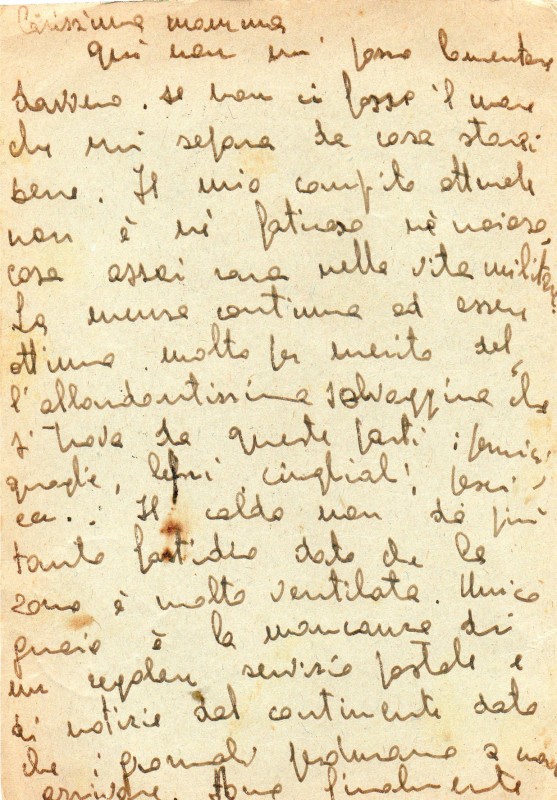 Carissima mamma
Quì non mi posso lamentare
davvero. Se non ci fosse il mare
che mi separa da casa starei
bene. Il mio compito attuale
non è nè faticoso nè noioso,
cosa assai rara nella vita militare.
La mensa continua ad essere
ottima molto per merito del-
l'abbondantissima selvaggina che
si trova da queste parti: pernici,
quaglie, lepri, cinghiali, pesci
ecc.. Il caldo non dà più
tanto fastidio dato che la
zona è molto ventilata. Unico
guaio è la mancanza di
un regolare servizio postale e
di notizie dal continente dato
che i giornali a non
arrivare. finalmente